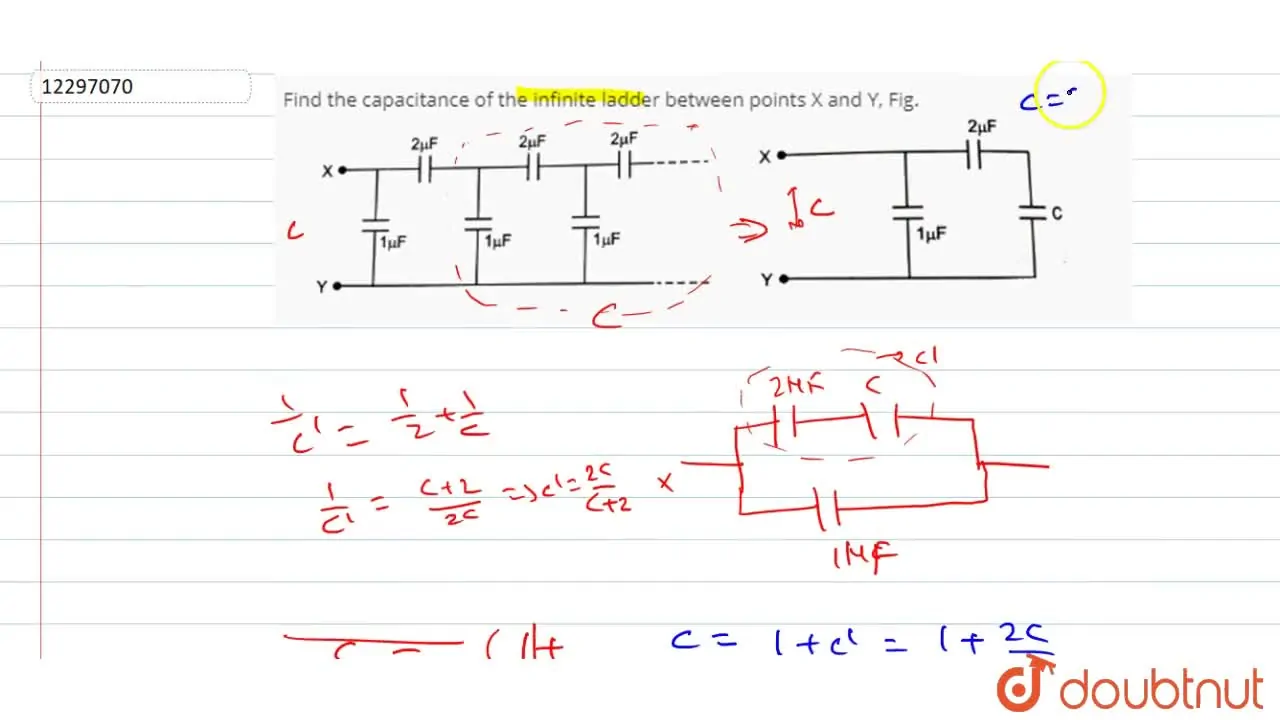 12297070
Find the capacitance of the infinite ladder between points X and Y, Fig.
C =
2μF 2μF 2μF
X
1μF 1μF 1μF
Y
C
C
⇒ C
2μF
X
1μF
C
Y
1/C' = 1/2 + 1/C
1/C' = C+2/2C => C' = 2C/C+2
X
2MF C → C'
1MF
C = 1 + C' = 1 + 2C
doubtnut